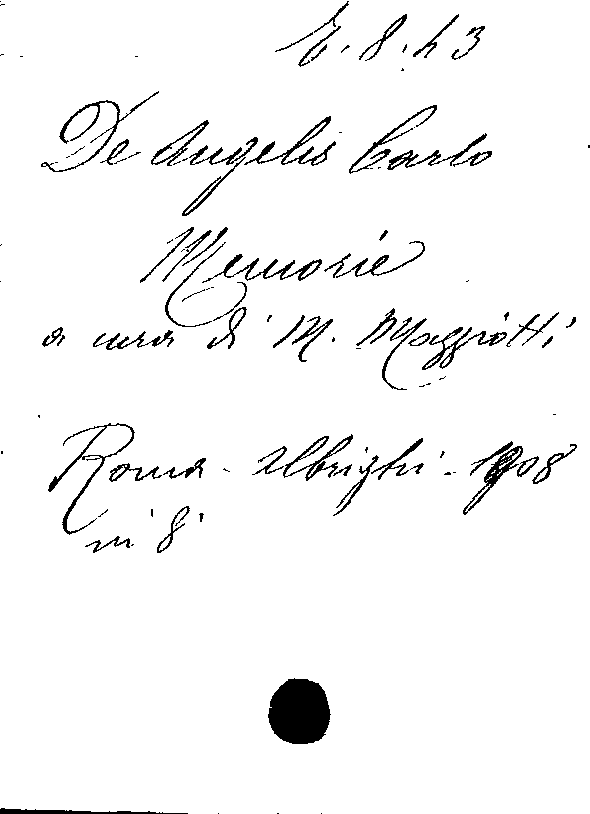 E. 8. 43
De Angelis Carlo
Memorie
a cura di M. Mazziotti
Roma - Albrighi - 1908
in 8°